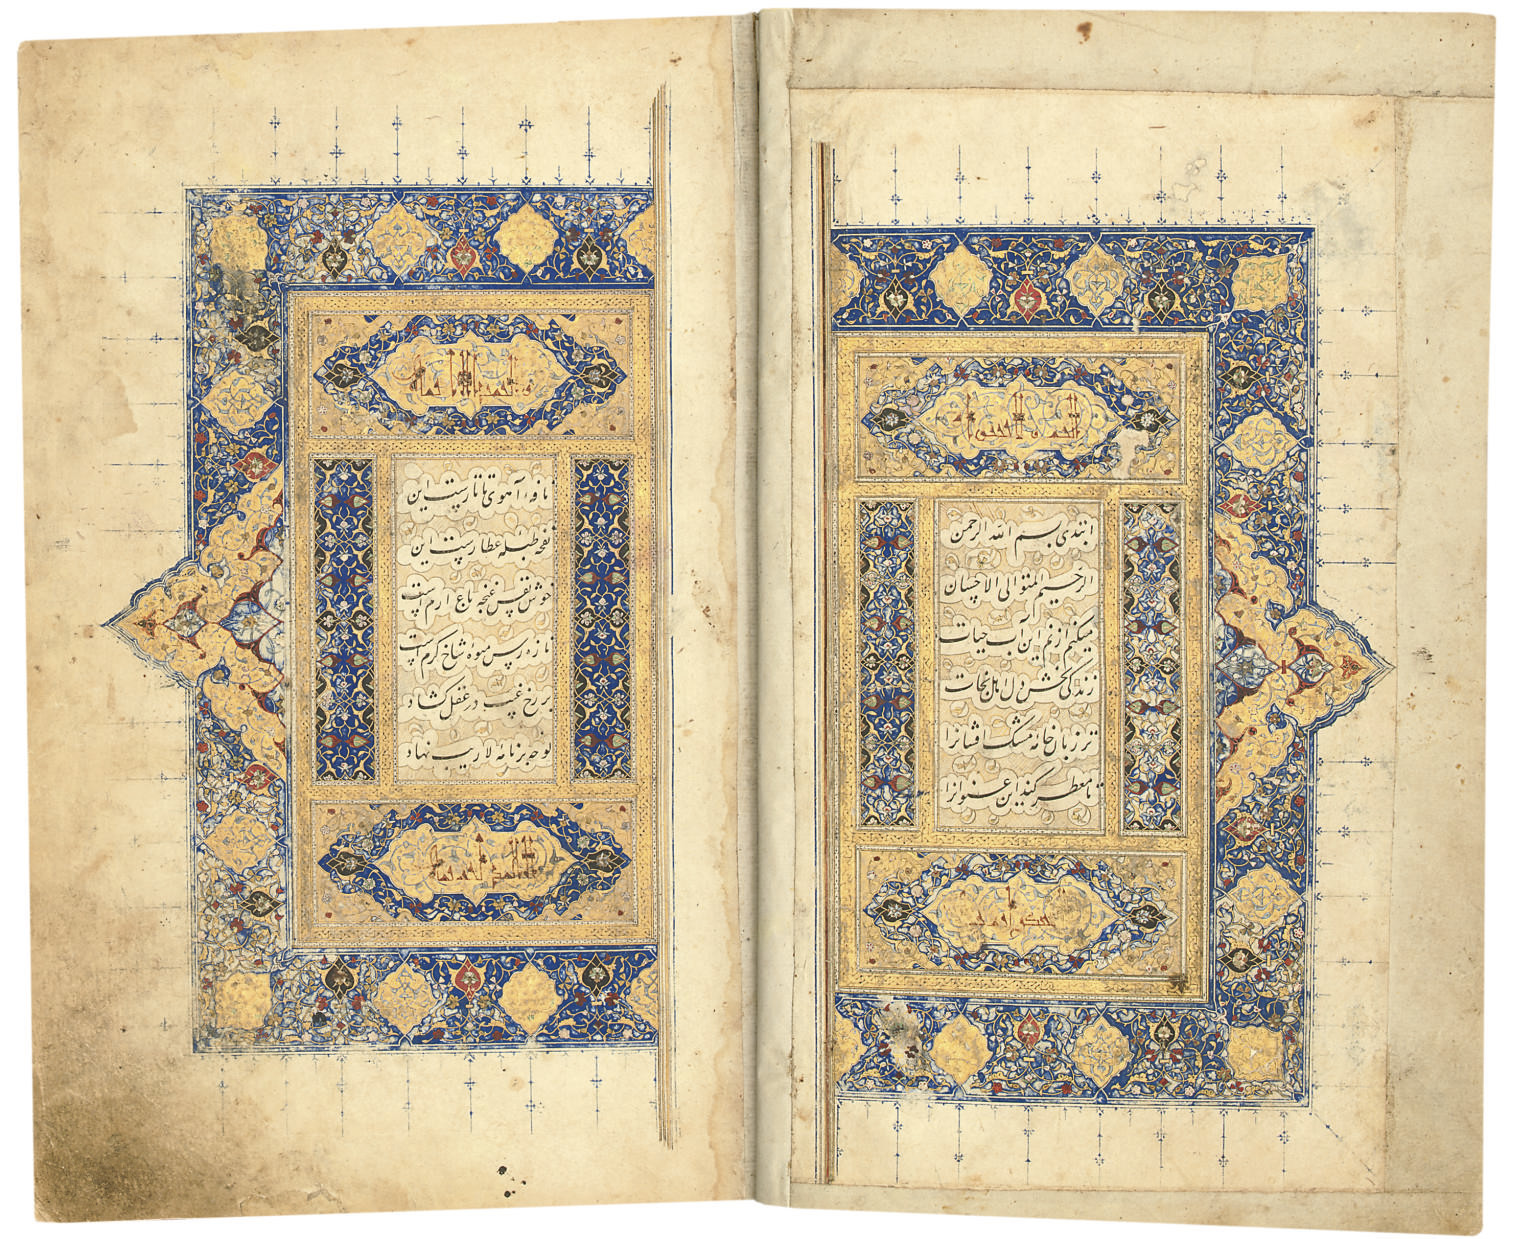 ابتدی بسم الله الرحمن
الرحیم المتوالی الاحسان
میکنم از نم این آب حیات
زندگی بخش دل اهل نجات
تر زبان خامه مشک افشانرا
تا معطر کند این عنوانرا
نافه آهوی تاتارست این
نفحه طبله عطارست این
خوش نفس غنچه باغ ارم است
تازه رس میوه شاخ کرم است
بر رخ غیب در عقل کشاد
لوحه بر نامه لاریب نهاد